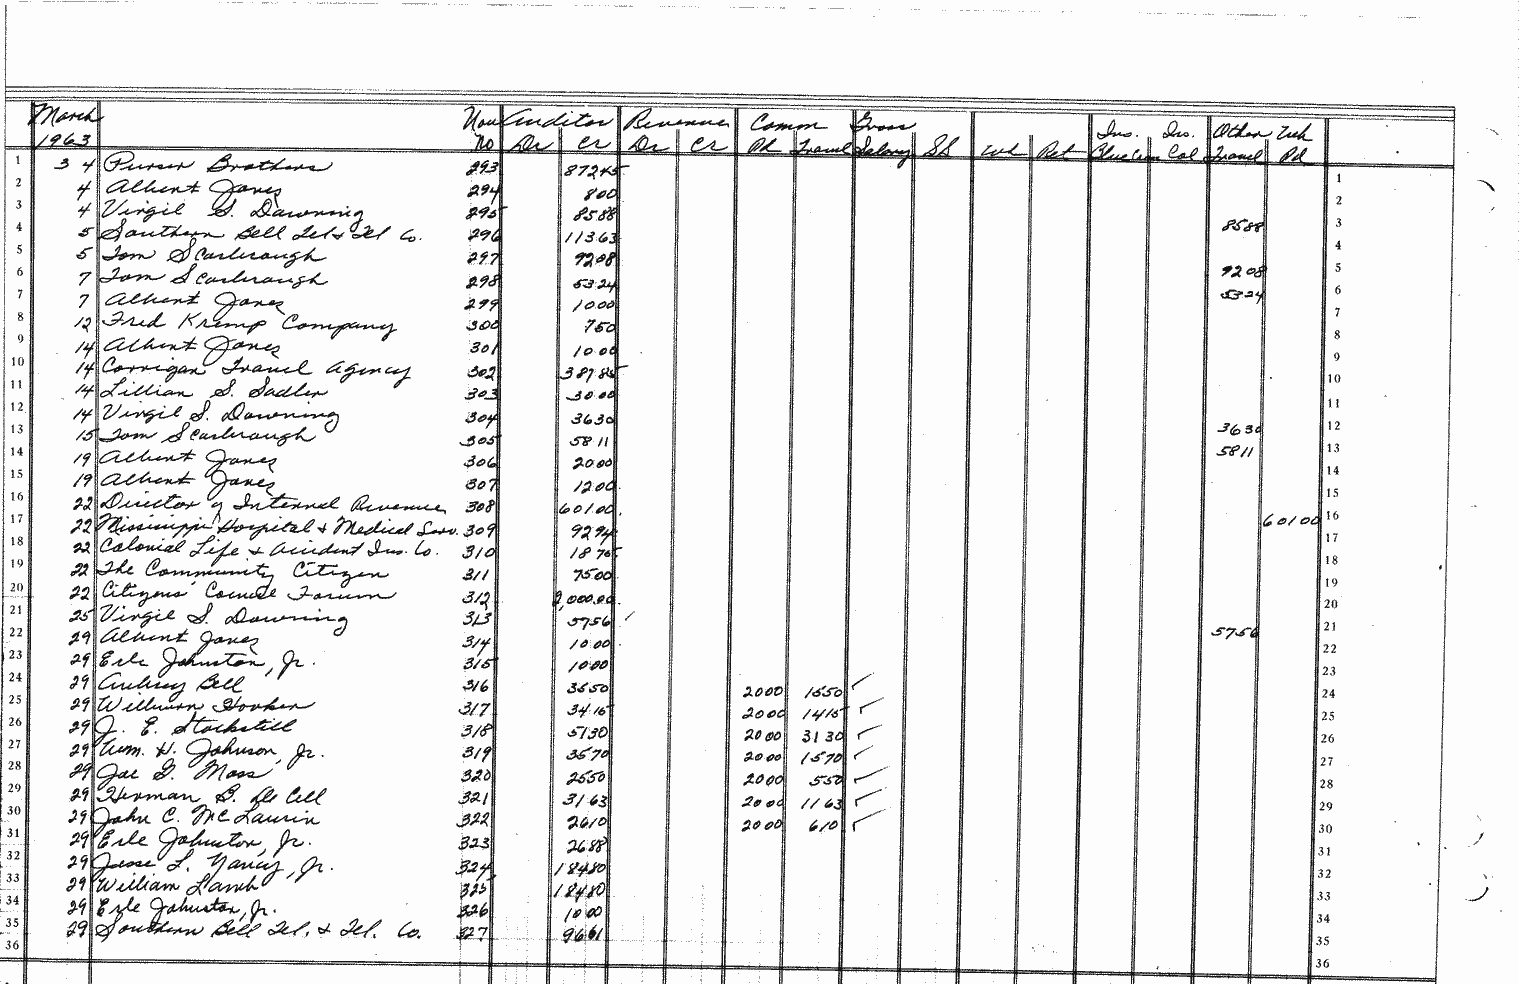 March Vou Auditor Revenue Comm Gross Ins. Ins. Other With
1963 No Dr Cr Dr Cr Pd Travel Salary SS Wh Ret Blue Cross Col Travel Pd
1 3 4 Purser Brothers 293 872 45 1
2 4 Albert Jones 294 8 00 2
3 4 Virgil S. Downing 295 85 88 85 88 3
4 5 Southern Bell Tel & Tel Co. 296 113 63 4
5 5 Tom Scarbrough 297 92 08 92 08 5
6 7 Tom Scarbrough 298 53 24 53 24 6
7 7 Albert Jones 299 10 00 7
8 12 Fred Kremp Company 300 7 50 8
9 14 Albert Jones 301 10 00 9
10 14 Corrigan Travel Agency 302 387 85 10
11 14 Lillian S. Sadler 303 30 00 11
12 14 Virgil S. Downing 304 36 30 36 30 12
13 15 Tom Scarbrough 305 58 11 58 11 13
14 19 Albert Jones 306 20 00 14
15 19 Albert Jones 307 12 00 15
16 22 Director of Internal Revenue 308 601.00. 601 00 16
17 22 Mississippi Hospital & Medical Serv. 309 92 94 17
18 22 Colonial Life & Accident Ins. Co. 310 18 75 18
19 22 The Community Citizen 311 75 00 19
20 22 Citizens' Council Forum 312 2,000.00. 20
21 25 Virgil S. Downing 313 57 56 57 56 21
22 29 Albert Jones 314 10 00 22
23 29 Erle Johnston, Jr. 315 10 00 23
24 29 Aubrey Bell 316 35 50 20 00 15 50 ✓ 24
25 29 William Hooker 317 34 15 20 00 14 15 ✓ 25
26 29 J. E. Stockstill 318 51 30 20 00 31 30 ✓ 26
27 29 Wm. H. Johnson, Jr. 319 35 70 20 00 15 70 ✓ 27
28 29 Joe G. Moss 320 25 50 20 00 5 50 ✓ 28
29 29 Herman B. De Cell 321 31 63 20 00 11 63 ✓ 29
30 29 John C. McLaurin 322 26 10 20 00 6 10 ✓ 30
31 29 Erle Johnston, Jr. 323 26 88 31
32 29 Jesse L. Yancy, Jr. 324 184 80 32
33 29 William Lamb 325 184 80 33
34 29 Erle Johnston, Jr. 326 10 00 34
35 29 Southern Bell Tel. & Tel. Co. 327 96 61 35
36 36